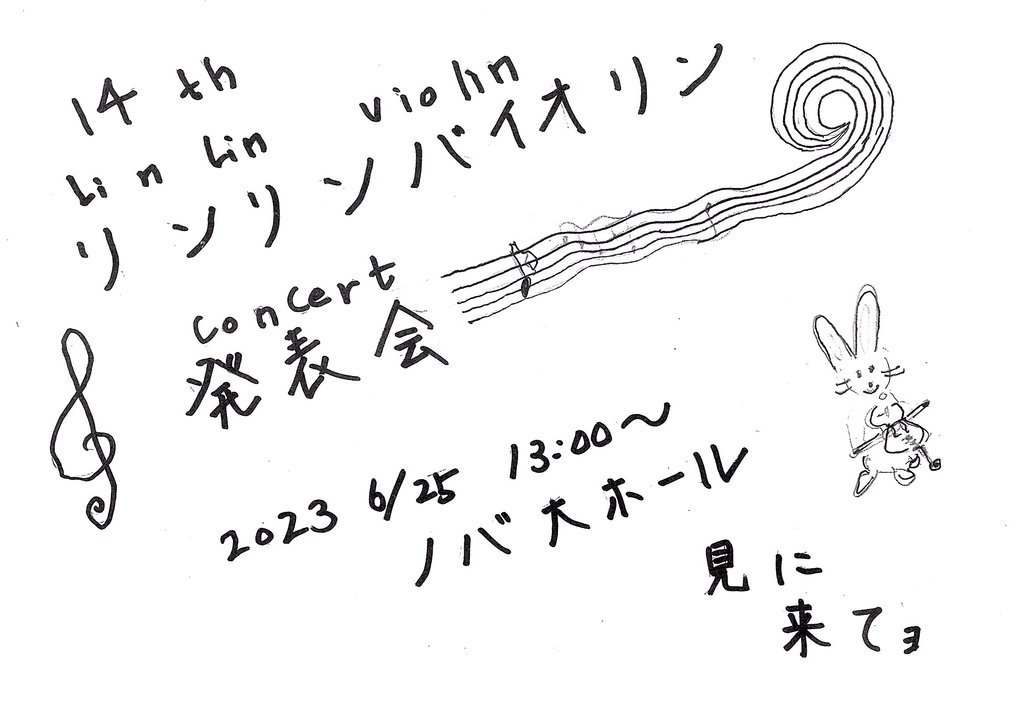 14 th
Lin Lin violin
リンリンバイオリン
concert
発表会
2023 6/25 13:00〜
ノバ大ホール
見に
来てヨ